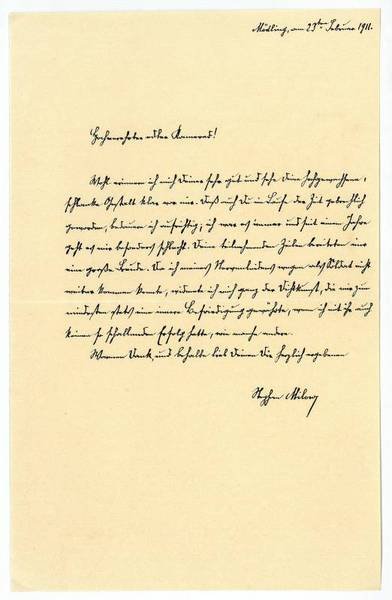 Mödling, am 23ten Februar 1911.
Hochverehrter edler Kamerad!
Wohl erinnere ich mich Deiner sehr gut und sehe Deine hochgewachsene,
schlanke Gestalt klar vor mir. Daß auch Du im Laufe der Zeit gebrechlich
geworden, bedaure ich aufrichtig, ich war es immer und seit einem Jahre
geht es mir besonders schlecht. Deine teilnehmenden Zeilen bereiteten mir
eine große Freude. Da ich meines Nervenleidens wegen als Soldat nicht
weiter kommen konnte, widmete ich mich ganz der Dichtkunst, die mir zu
mindesten stets eine innere Befriedigung gewährte, wenn ich mit ihr auch
keinen so schallenden Erfolg hatte, wie manche andere.
Warmen Dank, und behalte lieb Deinen Dir herzlich ergebenen
Stephan Milow